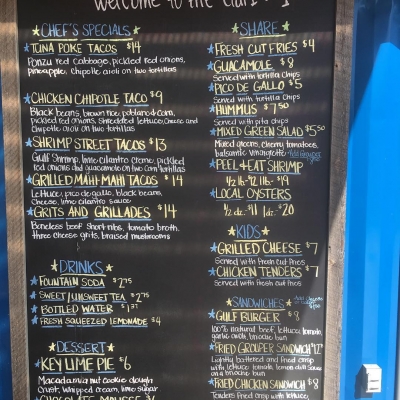 Welcome to the
CHEF'S SPECIALS
TUNA POKE TACOS $14
Ponzu red cabbage, pickled red onions,
pineapple, chipotle aioli on two tortillas
CHICKEN CHIPOTLE TACO $9
Black beans, brown rice, poblano + corn,
pickled red onions, shredded lettuce, cheese and
Chipotle aioli on two tortillas
SHRIMP STREET TACOS $13
Gulf Shrimp, lime cilantro creme, pickled
red onions and guacamole on two corn tortillas
GRILLED MAHI MAHI TACOS $14
Lettuce, pico de gallo, black beans,
Cheese, lime cilantro sauce
GRITS AND GRILLADES $14
Boneless beef short-ribs, tomato broth,
three cheese grits, braised mushrooms
DRINKS
FOUNTAIN SODA $2.75
SWEET/UNSWEET TEA $2.75
BOTTLED WATER
FRESH SQUEEZED LEMONADE $4
DESSERT
KEY LIME PIE $6
Macadamia nut cookie dough
Crust, whipped cream, lime sugar
CHOCOLATE MOUSSE
SHARE
FRESH CUT FRIES $4
GUACAMOLE $8
Served with tortilla chips
PICO DE GALLO $5
Served with tortilla chips
HUMMUS $7.50
Served with pita chips
MIXED GREEN SALAD $5.50
Mixed greens, cherry tomatoes,
balsamic vinaigrette
PEEL + EAT SHRIMP
1/2 lb - 12 1 lb - $19
LOCAL OYSTERS
1/2 dz. $11 1 dz. $20
KIDS
GRILLED CHEESE $7
Served with fresh cut fries
CHICKEN TENDERS $7
Served with fresh cut fries
SANDWICHES
GULF BURGER $8
100% natural beef, lettuce, tomato,
garlic aioli, brioche bun
FRIED GROUPER SANDWICH $17
Lightly battered and fried crisp
with lettuce, tomato, lemon dill sauce
on a brioche bun
FRIED CHICKEN SANDWICH $8
Tenders fried crisp with lettuce,